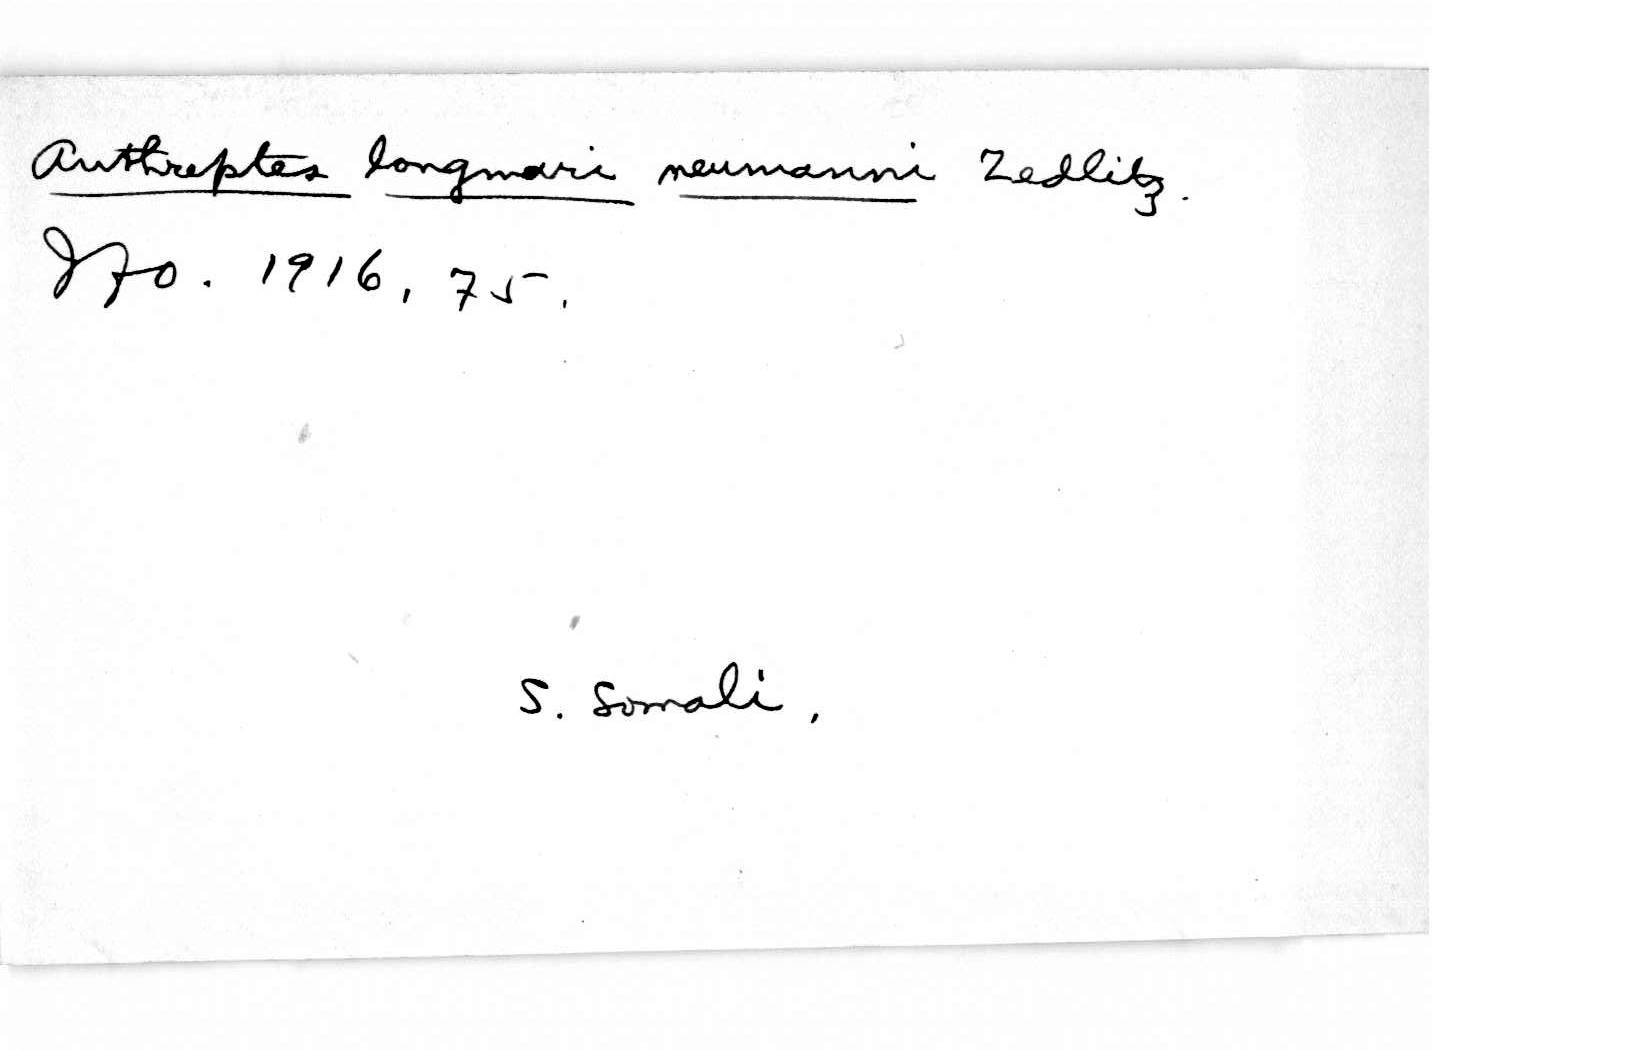 Anthreptes longmari neumanni Zedlitz.
Jfo. 1916, 75.
S. Somali,